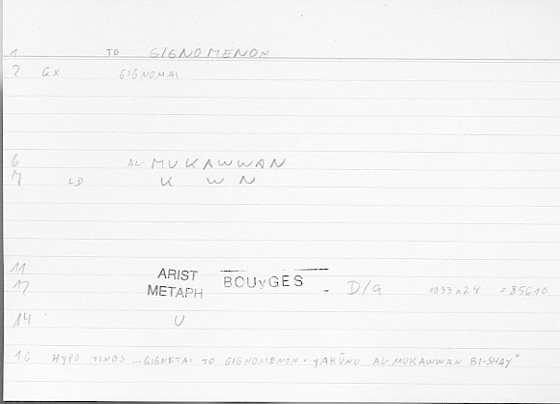 1 TO GIGNOMENON
2 GX GIGNOMAI
6 AL-MUKAWWAN
7 LD K W N
11 ARIST BOUyGES
METAPH D/G 1033A24 =856.10
14 U
16 HYPO TINOS ... GIGNETAI TO GIGNOMENON · yAKŪNU AL-MUKAWWAN BI-SHAy'